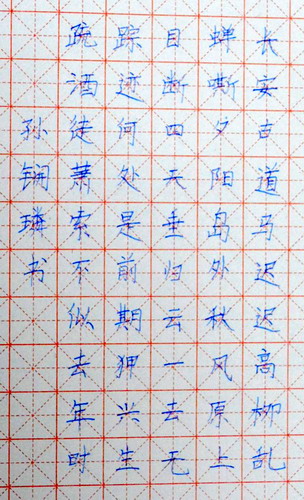 长安古道马迟迟高柳乱
蝉嘶夕阳岛外秋风原上
目断四天垂归云一去无
踪迹何处是前期狎兴生
疏酒徒萧索不似去年时
孙璘书